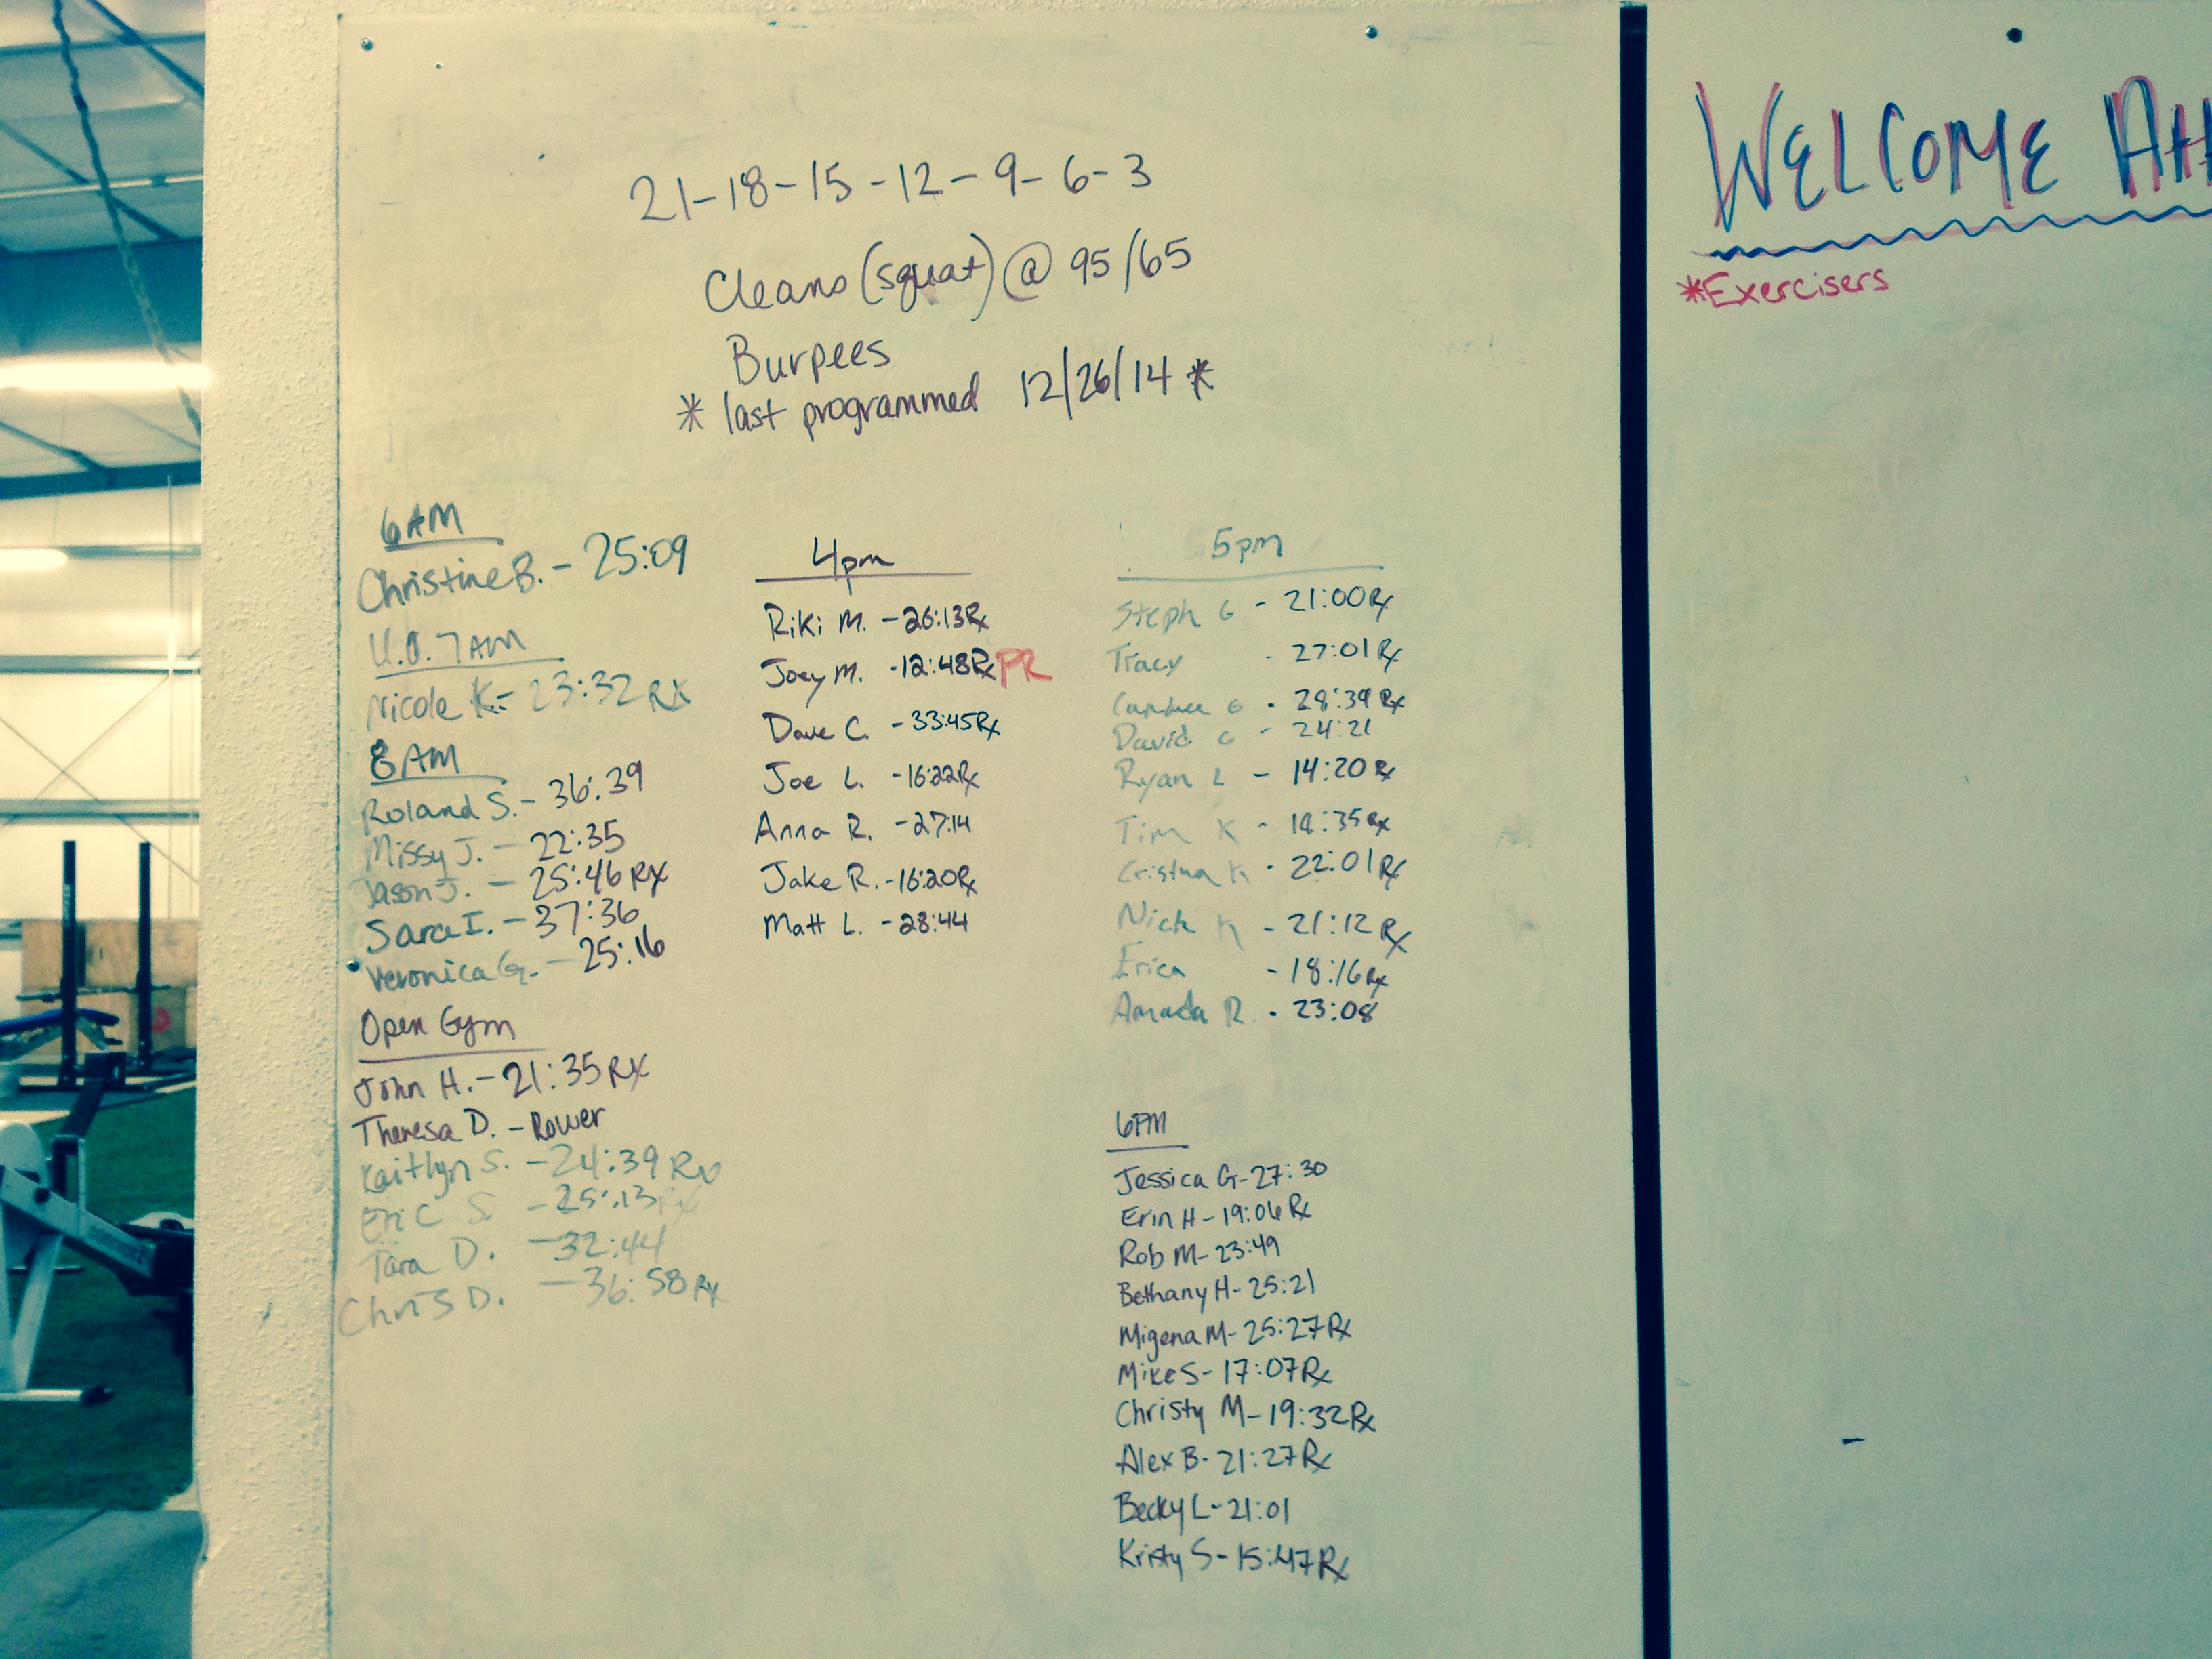 21-18-15-12-9-6-3
Cleans (squat) @ 95/65
Burpees
* last programmed 12/26/14 *
6AM
Christine B. - 25:09
U.O. 7AM
Nicole K. - 23:32 RX
8AM
Roland S. - 36:39
Missy J. - 22:35
Jason J. - 25:46 RX
Sara I. - 37:36
Veronica G. - 25:16
Open Gym
John H. - 21:35 RX
Theresa D. - Rower
Kaitlyn S. - 24:39 RX
Eric S. - 25:13 RX
Tara D. - 32:44
Chris D. - 36:58 RX
4pm
Riki M. - 26:13 Rx
Joey M. - 12:48 Rx PR
Dave C. - 33:45 Rx
Joe L. - 16:22 Rx
Anna R. - 27:14
Jake R. - 16:20 Rx
Matt L. - 28:44
5pm
Steph G - 21:00 Rx
Tracy - 27:01 Rx
G - 28:39 Rx
David G - 24:21
Ryan L - 14:20 Rx
Tim K - Rx
Cristina K - 22:01 Rx
Nick K - 21:12 Rx
Erica - 18:16 Rx
R. - 23:08
6PM
Jessica G - 27:30
Erin H - 19:06 Rx
Rob M - 23:49
Bethany H - 25:21
Migena M - 25:27 Rx
Mike S - 17:07 Rx
Christy M - 19:32 Rx
Alex B - 21:27 Rx
Becky L - 21:01
Kristy S - 15:47 Rx
WELCOME
*Exercisers